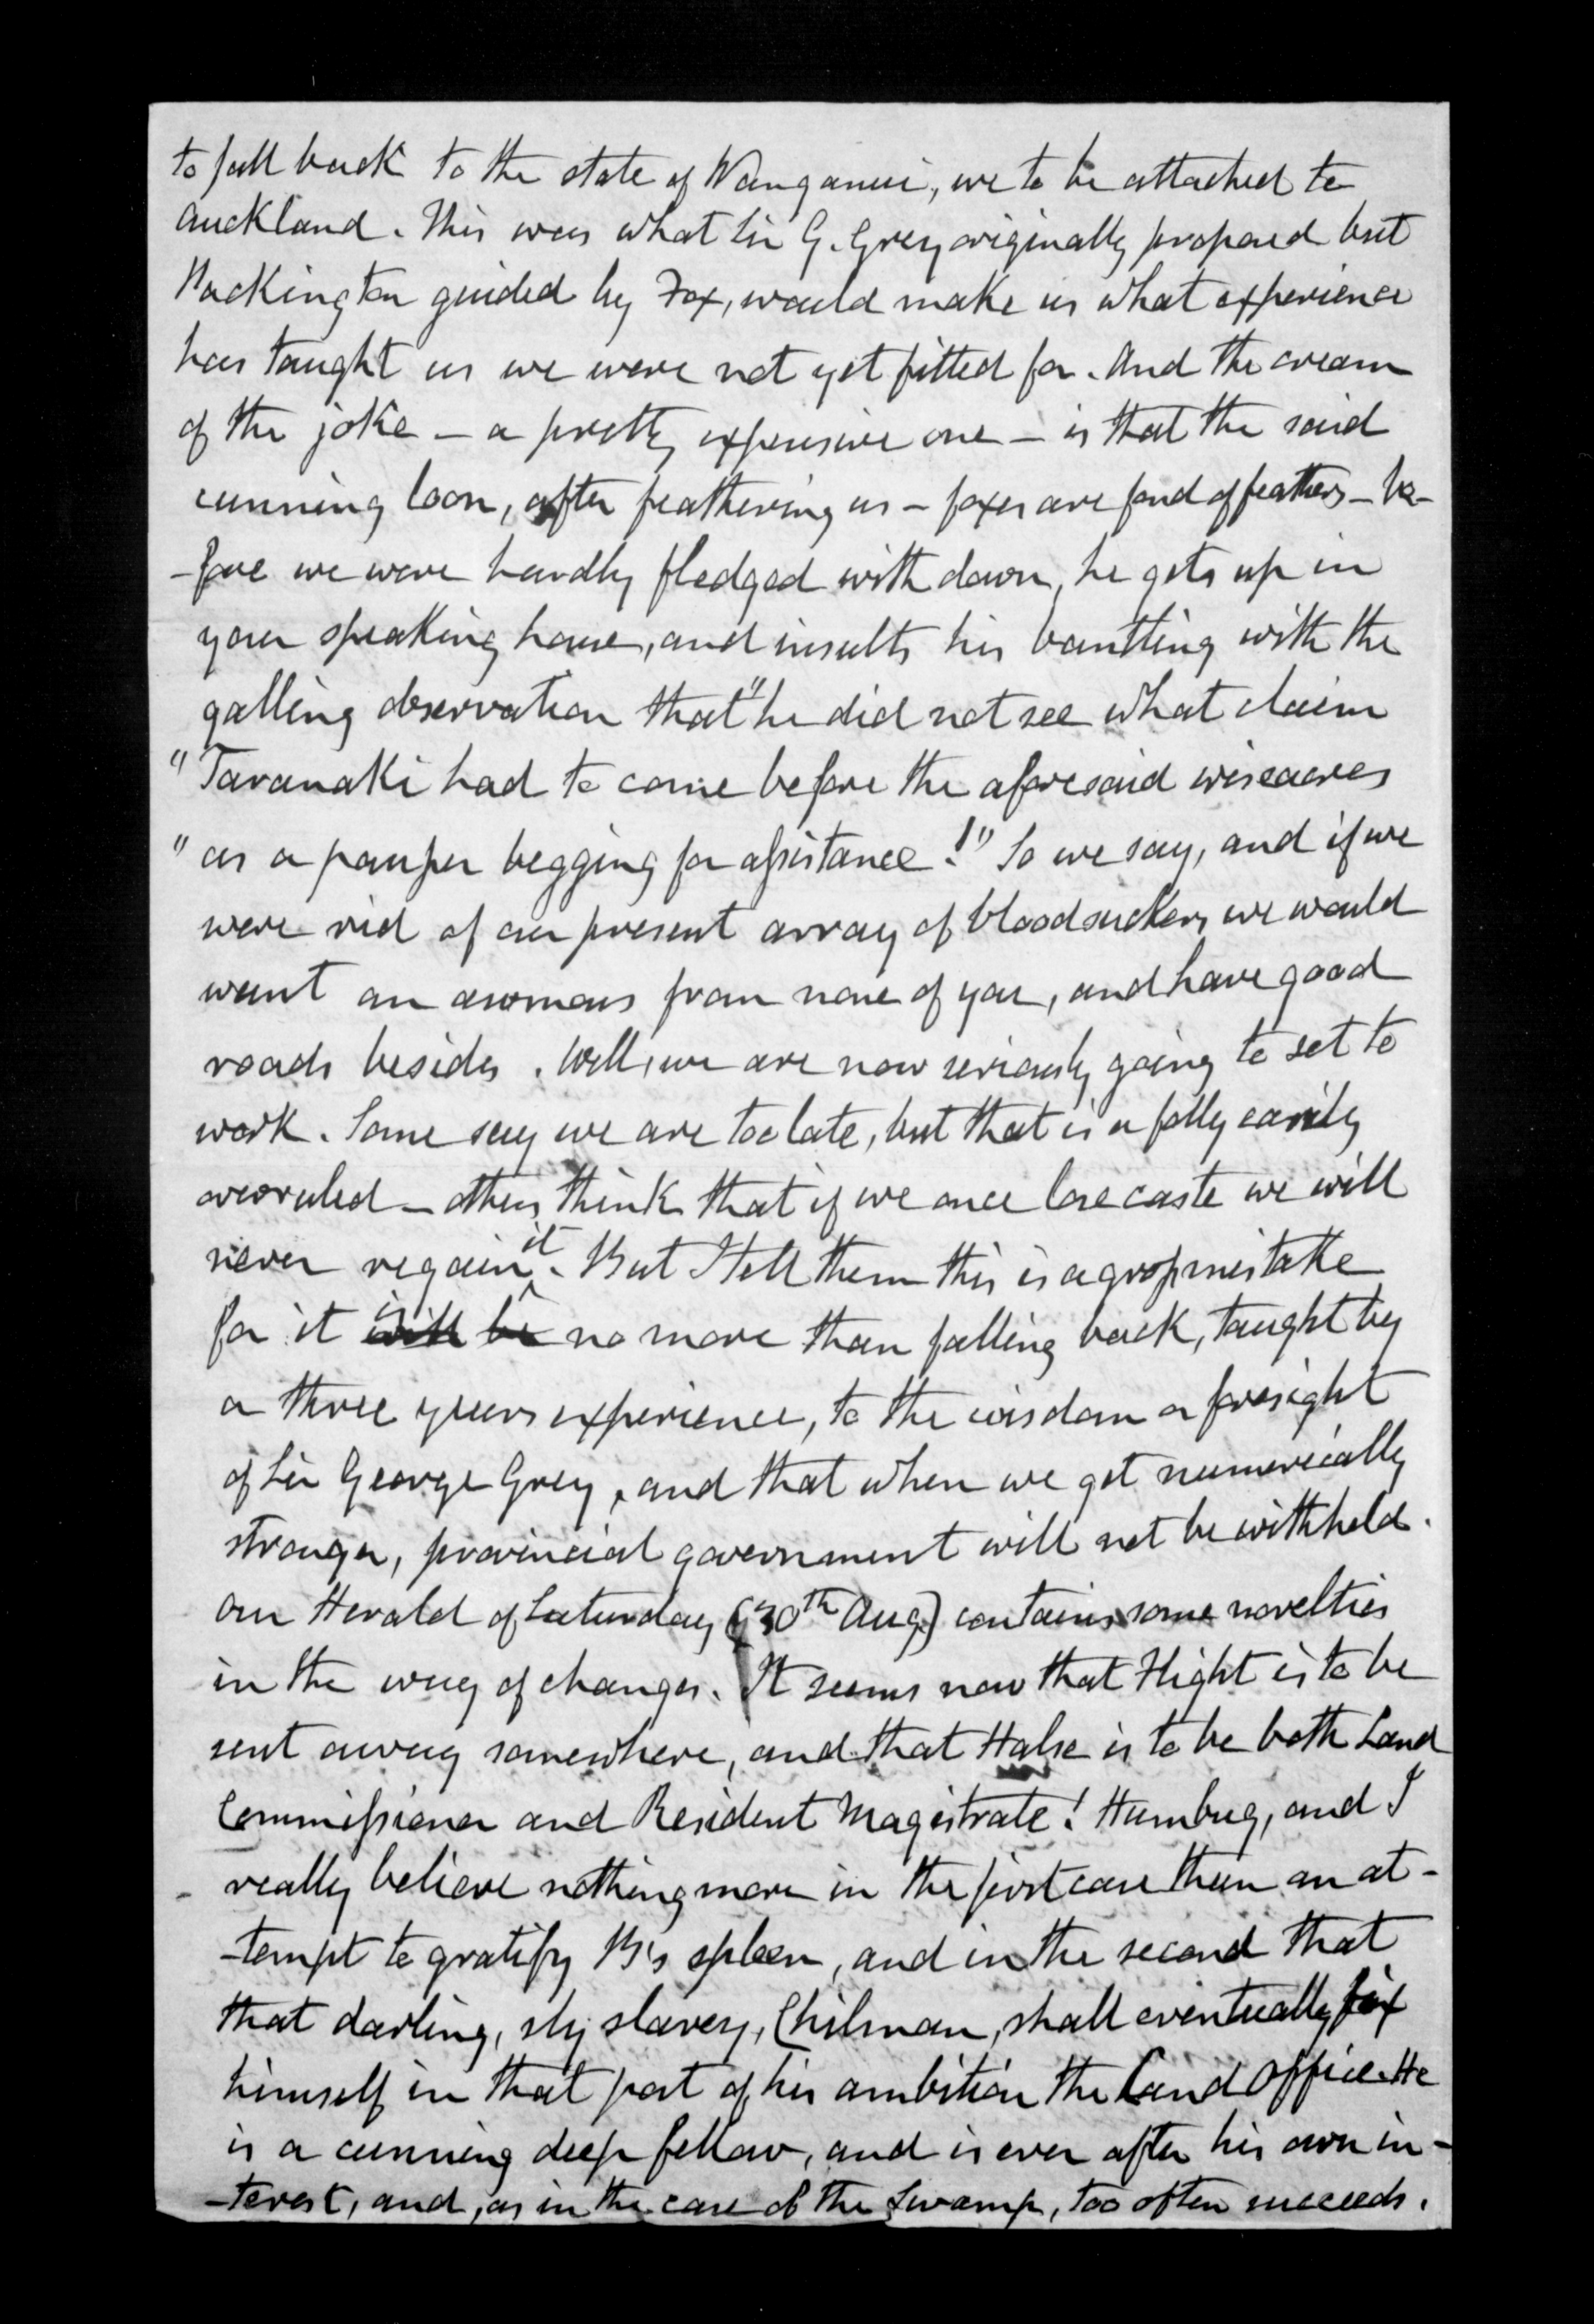 to fall back to the state of Wanganui, we to be attached to
Auckland. This was what Sir G. Grey originally proposed but
Packington guided by Fox, would make us what experience
has taught us we were not yet fitted for. And the cream
of the joke – a pretty expensive one – is that the said
cunning loon, after feathering us – foxes are fond of feathers – be-
-fore we were hardly fledged with down, he gets up in
your speaking house, and insults his bantling with the
galling observation that "he did not see what claim
"Taranaki had to come before the aforesaid wiseacres
"as a pauper begging for assistance!" So we say, and if we
were rid of our present array of bloodsuckers we would
want an from none of you, and have good
roads besides. Well, we are now seriously going to set to
work. Some say we are too late, but that is a folly easily
overruled – others think that if we once lose caste we will
never regain it. But I tell them this is a gross mistake
for it will be is no more than falling back, taught by
a three years experience, to the wisdom or foresight
of Sir George Grey, and that when we get numerically
stronger, provincial government will not be withheld.
Our Herald of Saturday (30th Aug) contains some novelties
in the way of changes. It seems now that Flight is to be
sent away somewhere, and that Halse is to be both Land
Commissioner and Resident Magistrate! Humbug, and I
really believe nothing more in the first case than an at-
-tempt to gratify B's spleen, and in the second that
that darling, sly slavery, Chilman, shall eventually fix
himself in that port of his ambition the Land Office. He
is a cunning deep fellow, and is ever after his own in-
-terest, and, as in the case of the Swamp, too often succeeds.